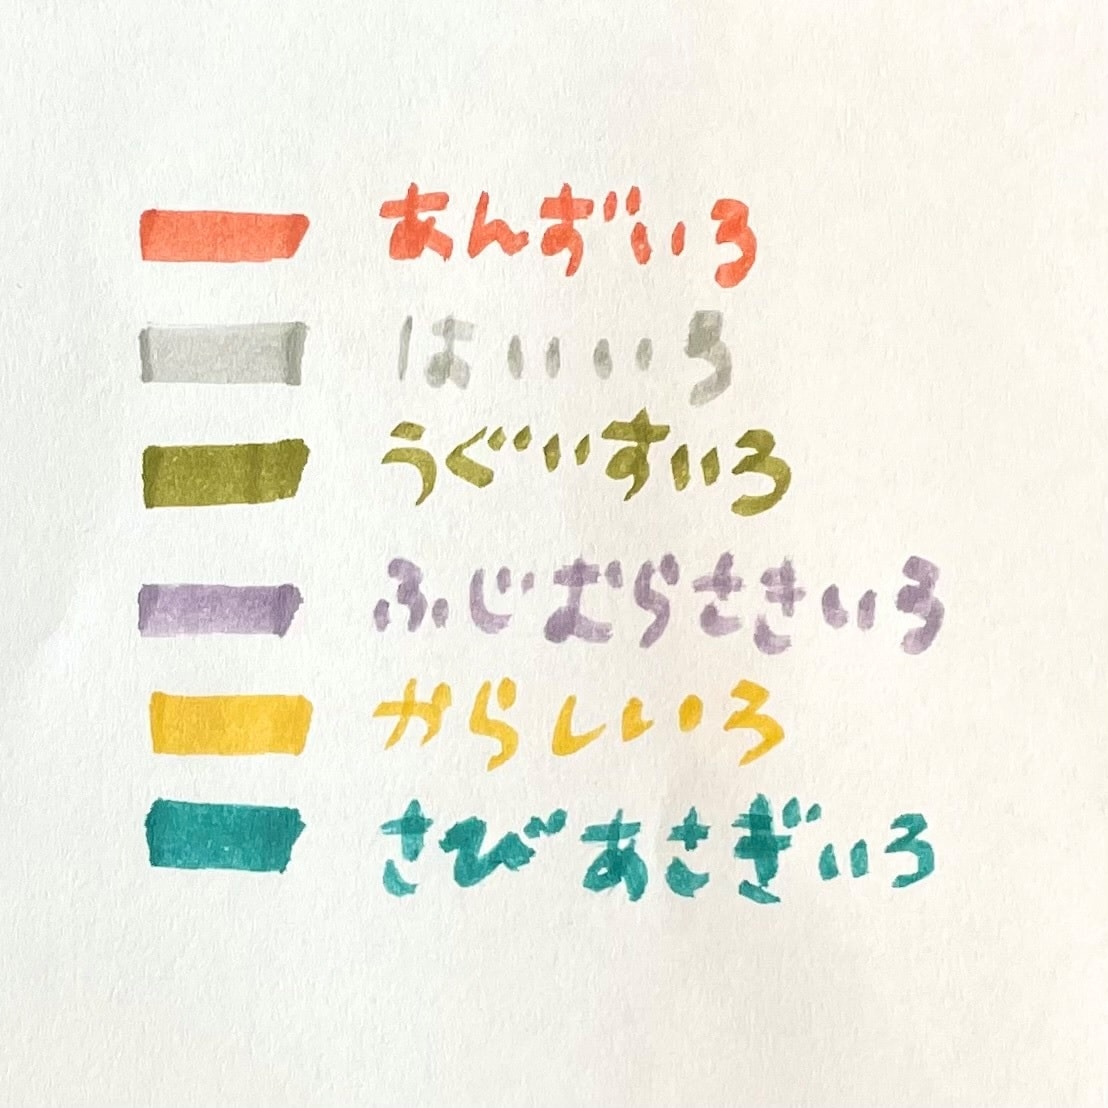 あんずいろ
はいいろ
うぐいすいろ
ふじむらさきいろ
からしいろ
さびあさぎいろ